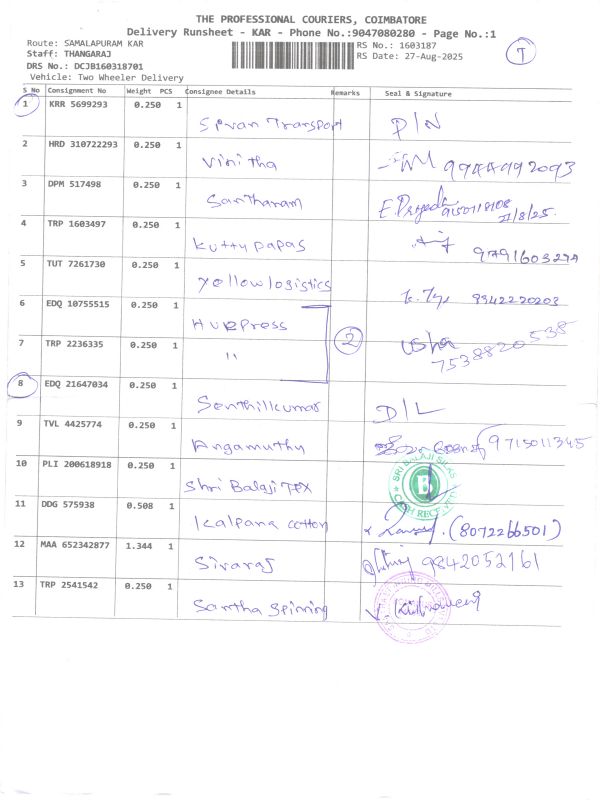 THE PROFESSIONAL COURIERS, COIMBATORE
Delivery Runsheet - KAR - Phone No.:9047080280 - Page No.:1
Route: SAMALAPURAM KAR RS No.: 1603187 T
Staff: THANGARAJ RS Date: 27-Aug-2025
DRS No.: DCJB160318701
Vehicle: Two Wheeler Delivery
S No Consignment No Weight PCS Consignee Details Remarks Seal & Signature
1 KRR 5699293 0.250 1
Sevan Transport D/N
2 HRD 310722293 0.250 1
Vinitha 9944992093
3 DPM 517498 0.250 1
Santharam E. Priyadh 9150118108
27/8/25.
4 TRP 1603497 0.250 1
Kuttypapas 9791603274
5 TUT 7261730 0.250 1
Yellow logistics 9942220203
6 EDQ 10755515 0.250 1
Hubpress 2 Usha
7 TRP 2236335 0.250 1
" 7538820538
8 EDQ 21647034 0.250 1
Senthilkumar D/L
9 TVL 4425774 0.250 1
Angamuthy 9715011345
10 PLI 200618918 0.250 1
Shri Balaji Tex SRI BALAJI B
11 DDG 575938 0.508 1
Kalpana cotton (8072266501)
12 MAA 652342877 1.344 1
Sivaraj 9842052161
13 TRP 2541542 0.250 1
Santha Spinning